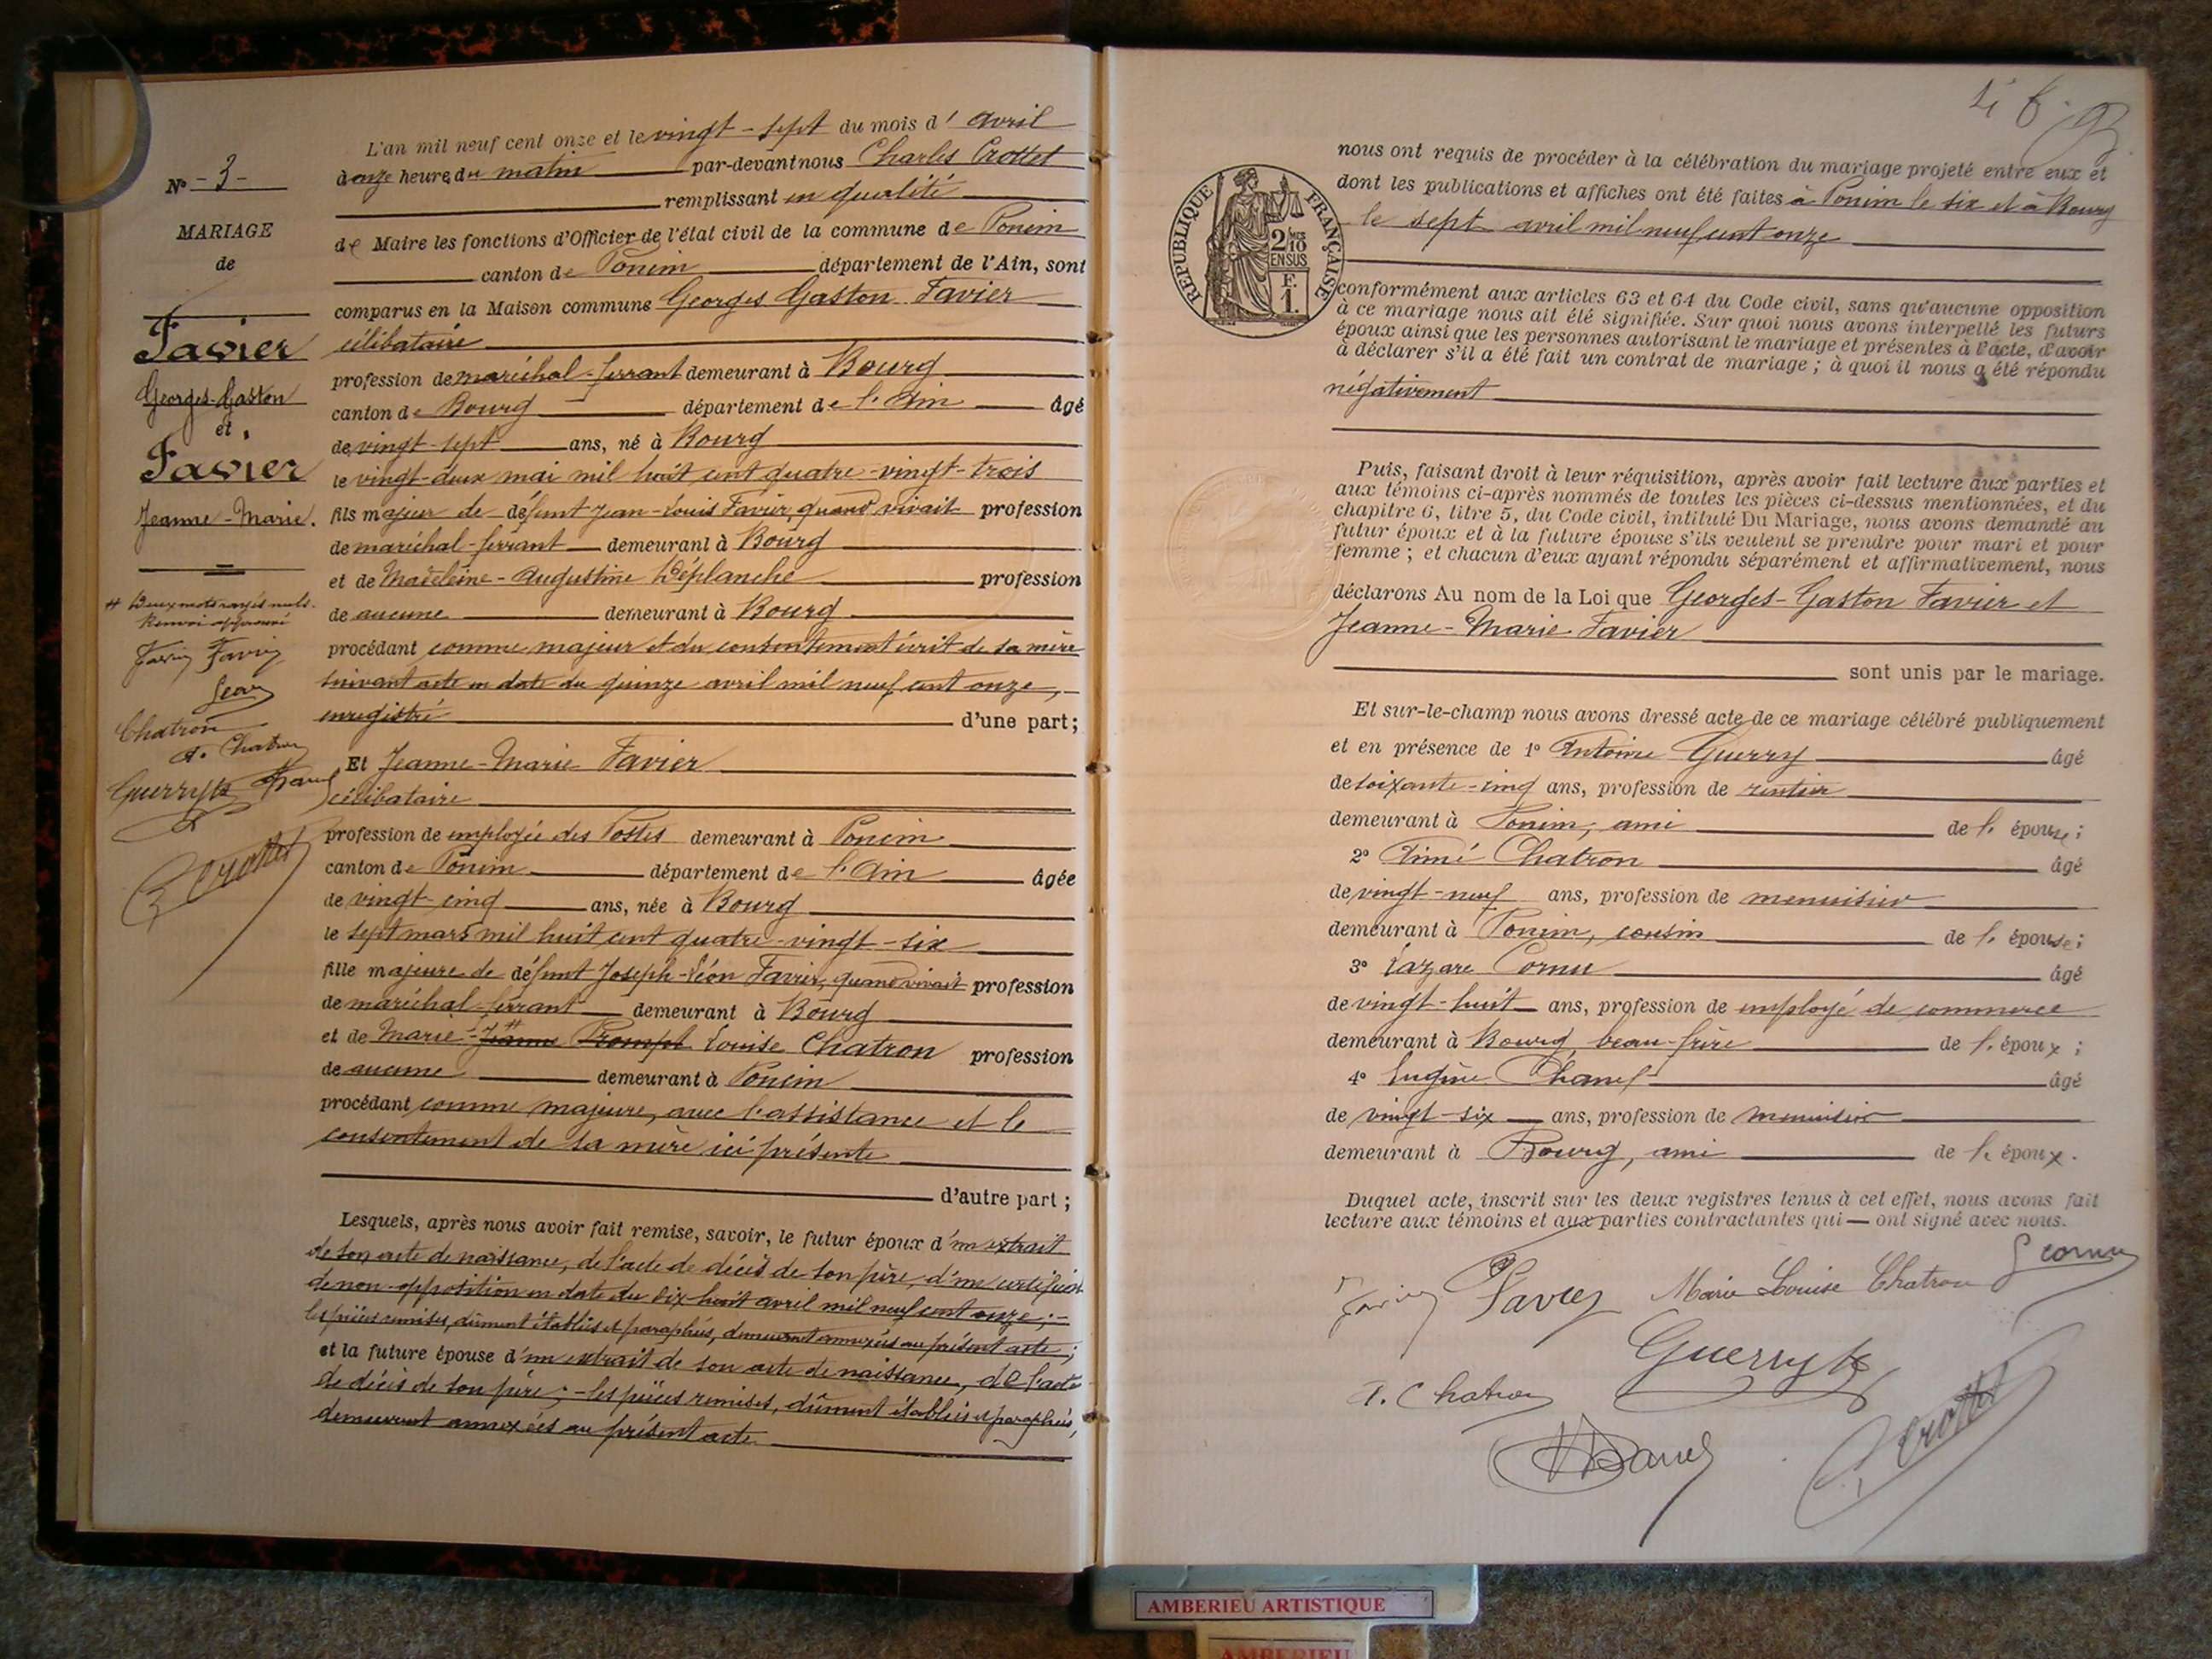 N° - 3 -
MARIAGE
de
Favier
Georges-Gaston
et
Favier
Jeanne-Marie.
# Deux mots rayés nuls.
Renvoi approuvé
Chatron
A. Chatron
Guerry
C Crottet
L'an mil neuf cent onze et le vingt-sept du mois d'avril
à onze heure du matin par-devant nous Charles Crottet
remplissant en qualité
de Maire les fonctions d'Officier de l'état civil de la commune de Poncin
canton de Poncin département de l'Ain, sont
comparus en la Maison commune Georges Gaston Favier
célibataire
profession de maréchal-ferrant demeurant à Bourg
canton de Bourg département de l'Ain âgé
de vingt-sept ans, né à Bourg
le vingt-deux mai mil huit cent quatre-vingt-trois
fils majeur de défunt Jean-Louis Favier, quand vivait profession
de maréchal-ferrant demeurant à Bourg
et de Madeleine-Augustine Déplanche profession
de aucune demeurant à Bourg
procédant comme majeur et du consentement écrit de sa mère
suivant acte en date du quinze avril mil neuf cent onze,
enregistré d'une part;
Et Jeanne-Marie Favier
célibataire
profession de employée des Postes demeurant à Poncin
canton de Poncin département de l'Ain âgée
de vingt-cinq ans, née à Bourg
le sept mars mil huit cent quatre-vingt-six
fille majeure de défunt Joseph-Léon Favier, quand vivait profession
de maréchal-ferrant demeurant à Bourg
et de Marie-Jeanne # Prompt Louise Chatron profession
de aucune demeurant à Poncin
procédant comme majeure, avec l'assistance et le
consentement de sa mère ici présente
d'autre part ;
Lesquels, après nous avoir fait remise, savoir, le futur époux d'un extrait
de son acte de naissance, de l'acte de décès de son père, d'un certificat
de non-opposition en date du dix-huit avril mil neuf cent onze ;-
les pièces remises, dûment établies et paraphées, demeurent annexées au présent acte ;
et la future épouse d'un extrait de son acte de naissance, de l'acte
de décès de son père ; - les pièces remises, dûment établies et paraphées,
demeurent annexées au présent acte
RÉPUBLIQUE FRANÇAISE
2/10 EN SUS
F.
1.
nous ont requis de procéder à la célébration du mariage projeté entre eux et
dont les publications et affiches ont été faites à Poncin le six et à Bourg
le sept avril mil neuf cent onze
conformément aux articles 63 et 64 du Code civil, sans qu'aucune opposition
à ce mariage nous ait été signifiée. Sur quoi nous avons interpellé les futurs
époux ainsi que les personnes autorisant le mariage et présentes à l'acte, d'avoir
à déclarer s'il a été fait un contrat de mariage ; à quoi il nous a été répondu
négativement
Puis, faisant droit à leur réquisition, après avoir fait lecture aux parties et
aux témoins ci-après nommés de toutes les pièces ci-dessus mentionnées, et du
chapitre 6, titre 5, du Code civil, intitulé Du Mariage, nous avons demandé au
futur époux et à la future épouse s'ils veulent se prendre pour mari et pour
femme ; et chacun d'eux ayant répondu séparément et affirmativement, nous
déclarons Au nom de la Loi que Georges-Gaston Favier et
Jeanne-Marie Favier
sont unis par le mariage.
Et sur-le-champ nous avons dressé acte de ce mariage célébré publiquement
et en présence de 1° Antoine Guerry âgé
de soixante-cinq ans, profession de rentier
demeurant à Poncin, ami de l'épouse ;
2° Aimé Chatron âgé
de vingt-neuf ans, profession de menuisier
demeurant à Poncin, cousin de l'épouse ;
3° Lazare Cornu âgé
de vingt-huit ans, profession de employé de commerce
demeurant à Bourg, beau-frère de l'époux ;
4° Eugène Chanel âgé
de vingt-six ans, profession de menuisier
demeurant à Bourg, ami de l'époux.
Duquel acte, inscrit sur les deux registres tenus à cet effet, nous avons fait
lecture aux témoins et aux parties contractantes qui — ont signé avec nous.
Favier Marie Louise Chatron L cornu
Guerry
A. Chatron
Chanel
C. Crottet
AMBERIEU ARTISTIQUE
AMBERIEU